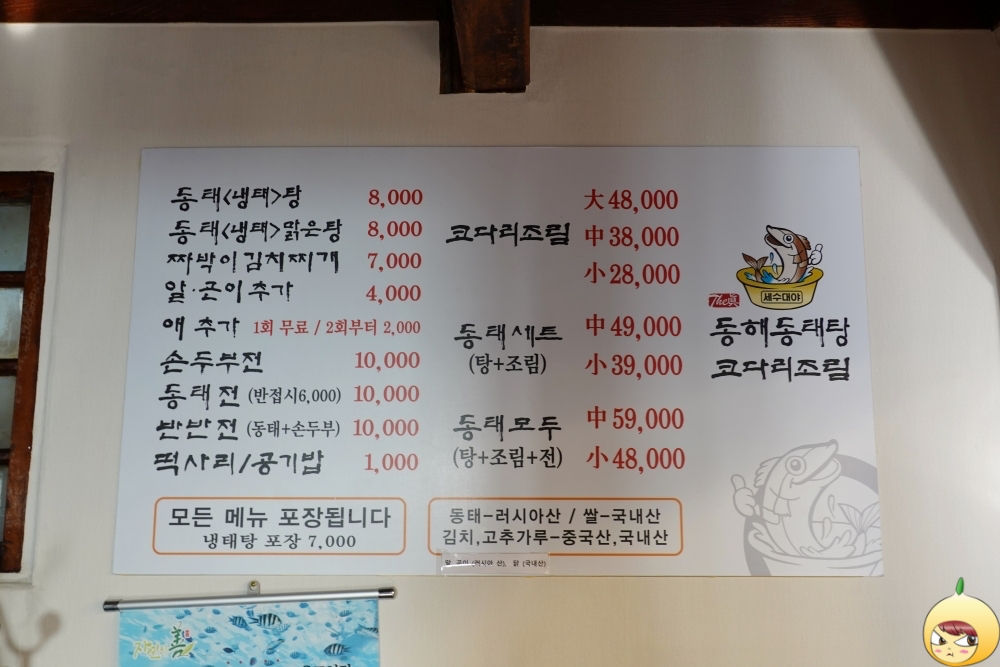 동태<냉태>탕 8,000
동태<냉태>맑은탕 8,000
짜박이김치찌개 7,000
알·곤이추가 4,000
애 추가 1회 무료 / 2회부터 2,000
손두부전 10,000
동태전 (반접시6,000) 10,000
반반전 (동태+손두부) 10,000
떡사리/공기밥 1,000
모든 메뉴 포장됩니다
냉태탕 포장 7,000
코다리조림
大 48,000
中 38,000
小 28,000
동태세트
(탕+조림)
中 49,000
小 39,000
동태모두
(탕+조림+전)
中 59,000
小 48,000
동태-러시아산 / 쌀-국내산
김치,고추가루-중국산,국내산
알 곤이 (러시아 산), 닭 (국내산)
세수대야
The眞
동해동태탕
코다리조림